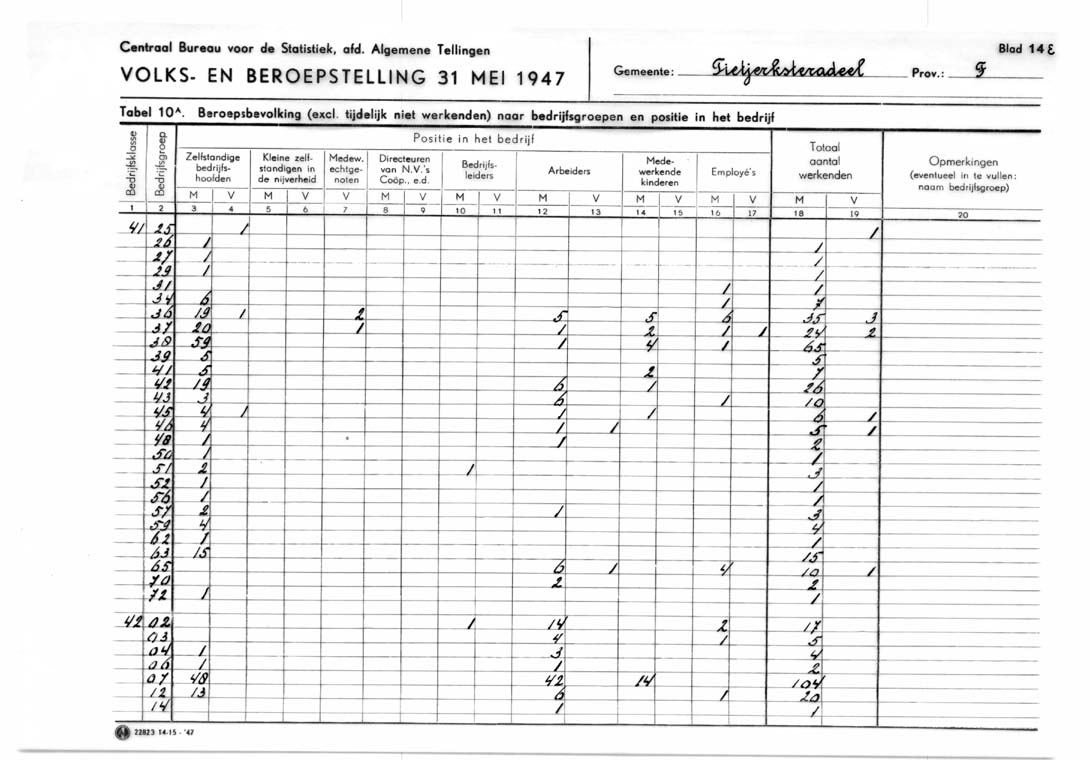 Centraal Bureau voor de Statistiek, afd. Algemene Tellingen
Blad 14 E
VOLKS- EN BEROEPSTELLING 31 MEI 1947
Gemeente: Tietjerksteradeel Prov.: F
Tabel 10A. Beroepsbevolking (excl. tijdelijk niet werkenden) naar bedrijfsgroepen en positie in het bedrijf
Bedrijfsklasse
Bedrijfsgroep
Positie in het bedrijf
Zelfstandige bedrijfs- hoofden
Kleine zelf- standigen in de nijverheid
Medew. echtge- noten
Directeuren van N.V.'s Coöp., e.d.
Bedrijfs- leiders
Arbeiders
Mede- werkende kinderen
Employé's
Totaal aantal werkenden
Opmerkingen (eventueel in te vullen: naam bedrijfsgroep)
M V M V V M V M V M V M V M V M V
1 2 3 4 5 6 7 8 9 10 11 12 13 14 15 16 17 18 19 20
41 25 1 1
26 1 1
27 1 1
29 1 1
31 1 1
34 6 1 7
36 19 1 2 5 5 6 35 3
37 20 1 1 2 1 1 24 2
38 59 1 4 1 65
39 5 5
41 5 2 7
42 19 6 1 26
43 3 6 1 10
45 4 1 1 1 6 1
46 4 1 1 5 1
48 1 1 2
50 1 1
51 2 1 3
52 1 1
56 1 1
57 2 1 3
59 4 4
62 1 1
63 15 15
65 6 1 4 10 1
70 2 2
72 1 1
42 02 1 14 2 17
03 4 1 5
04 1 3 4
06 1 1 2
07 48 42 14 104
12 13 6 1 20
14 1 1
22823 14-15 - '47